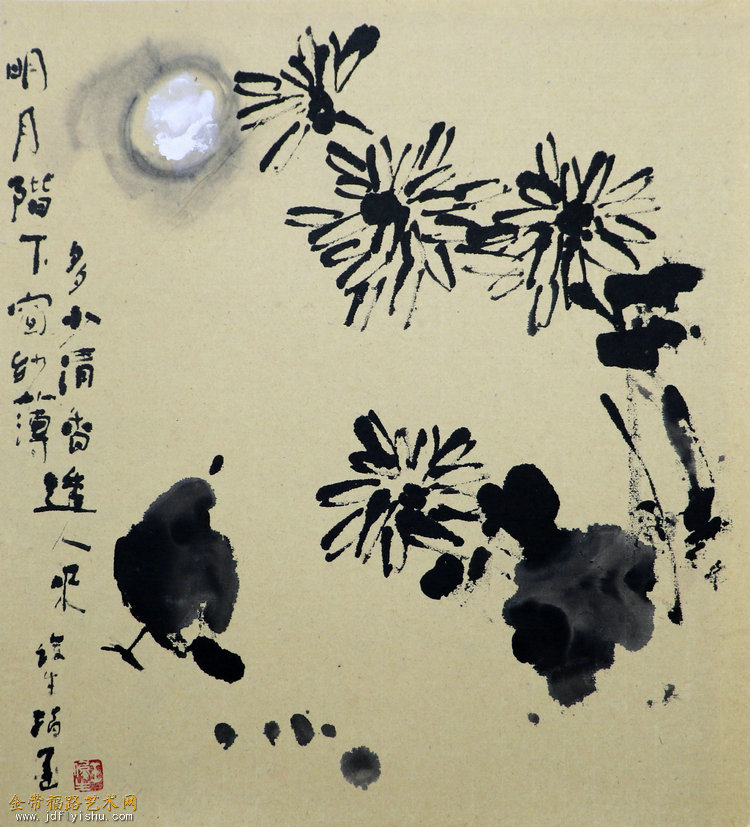 明月階下窗紗薄
多少清香透入來
金带福路艺术网
www.jdflyishu.com